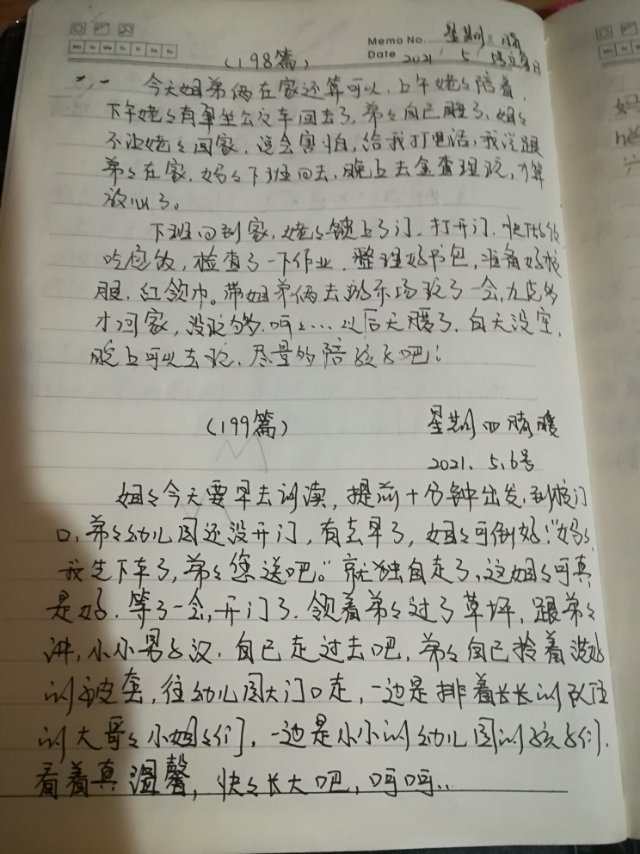 Memo No. 星期三 晴
Date 2021 5
(198篇)
今天姐弟俩在家还算可以,上午姥々陪着,
下午姥々有事坐公交车回去了,弟々自己睡了,姐々
不让姥々回家,这会害怕,给我打电话,我说跟
弟々在家,妈々下班回去,晚上去金查理玩,才算
放心了。
下班回到家,姥々锁上了门,打开门,
吃完饭,检查了一下作业,整理好书包,准备好校
服,红领巾。带姐弟俩去游乐场玩了一会,九点多
才回家,没玩够,呵々…以后天暖了,白天没空,
晚上可以去玩,尽量的陪孩子吧!
(199篇) 星期四 晴暖
2021. 5.6号
姐々今天要早去诵读,提前十分钟出发,到校门
口,弟々幼儿园还没开门,有点早了,姐々可倒好!"妈々,
我先下车了,弟々您送吧。"就独自走了,这姐々可真
是好.等了一会,开门了.领着弟々过了草坪,跟弟々
讲,小小男子汉,自己走过去吧,弟々自己拎着
的被套,往幼儿园大门口走,一边是排着长长的队伍
的大哥々小姐々们,一边是小小的幼儿园的孩子们.
看着真温馨,快々长大吧,呵呵..